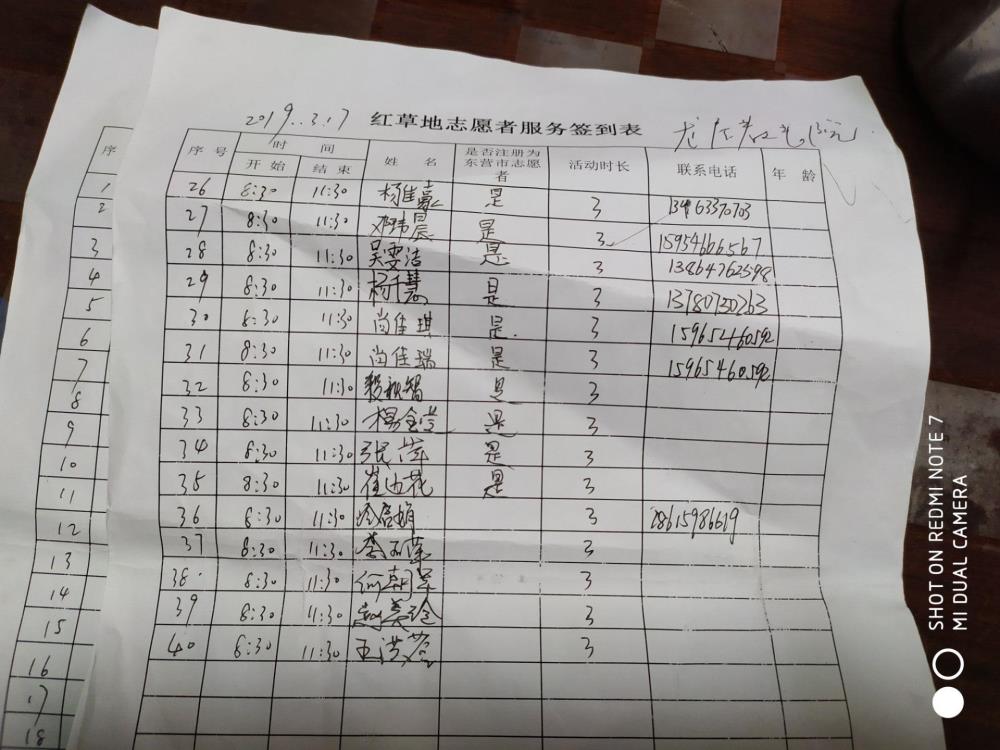 2019.3.17 红草地志愿者服务签到表
序号 时间 开始 结束 姓名 是否注册为东营市志愿者 活动时长 联系电话 年龄
26 8:30 11:30 杨佳豪 是 3
27 8:30 11:30 邓玮晨 是 3 15954666567
28 8:30 11:30 吴雯洁 是 3 13864762598
29 8:30 11:30 杨千慧 是 3 13780730263
30 8:30 11:30 尚佳琪 是. 3 15965460592
31 8:30 11:30 尚佳瑞 是 3 15965460592
32 8:30 11:30 是 3
33 8:30 11:30 是 3
34 8:30 11:30 张萍 是 3
35 8:30 11:30 崔迎花 是 3
36 8:30 11:30 3
37 8:30 11:30 3
38 8:30 11:30 3
39 8:30 11:30 3
40 8:30 11:30 3
序
1
2
3
4
5
6
7
8
9
10
11
12
13
14
15
16
17
18
SHOT ON REDMI NOTE 7
MI DUAL CAMERA